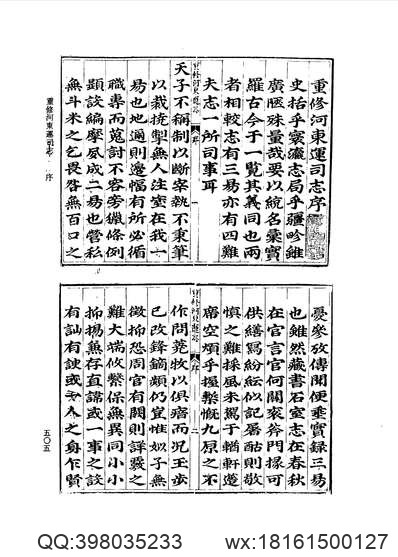 重修河東運司志序
史括乎寰瀛志局乎疆畛雖
廣陿殊量哉要以統名彙實
羅古今于一覽其義同也兩
者相較志有三易亦有四難
夫志一所司事耳
天子不稱制以斷宰執不秉筆
以裁挠掣無人注室在我一
易也地通則邊幅有所必循
職專而蒐討不容旁獵條例
顯設編摩夙成二易也管私
無斗米之乞畏咎無百口之
憂參攷傳聞便垂實錄三易
也雖然藏書石室志在春秋
在官言官何關衮斧門掾可
供繕寫紛紜似記屠酤則敬
慎之難採風未駕于輶軒遼
席空煩乎握槧慨九原之不
作問蒭牧以俱窮而況玉步
已改鋒鏑頗仍豈惟如子無
徵抑恐周官有闕則詳覈之
難大端攸繫保無異同小小
抑揚兼存直諒或一事之談
有訕有諛或一人之身乍賢
重修河東運司志 序
五〇五
QQ:398035233
wx:18161500127